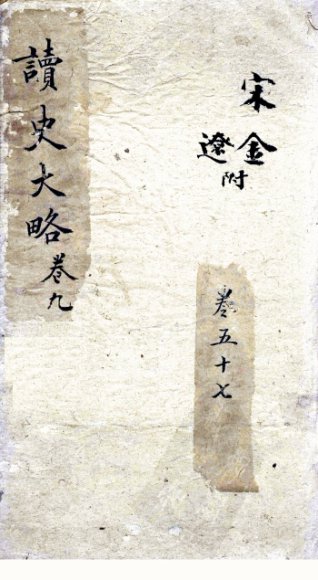 宋
金遼附
卷五十七
讀史大略 卷九